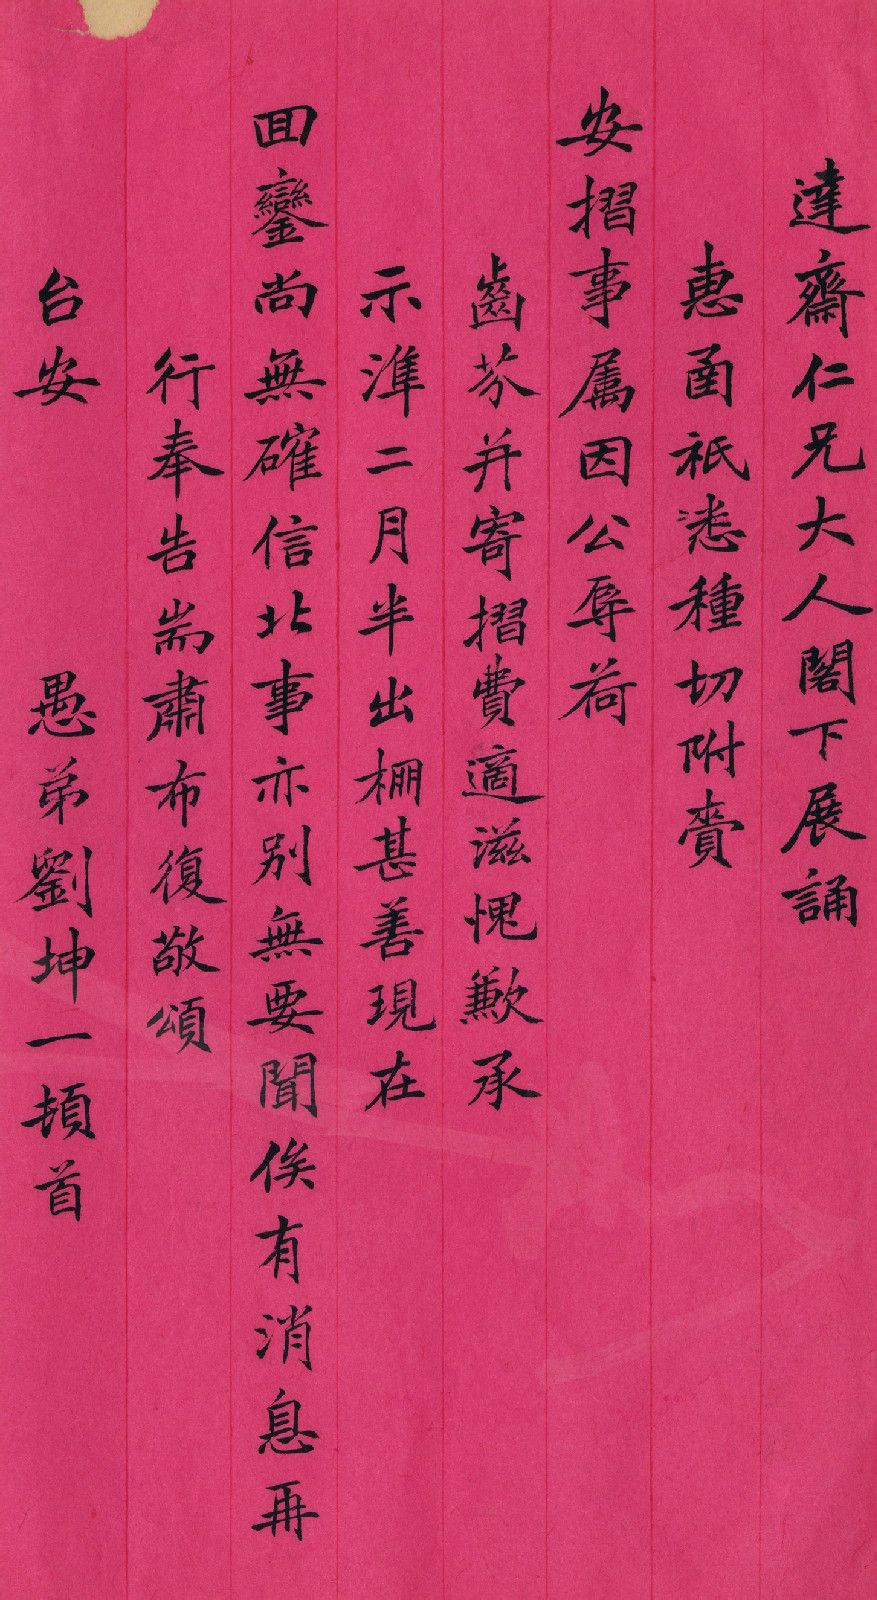 達齋仁兄大人閣下展誦
惠函祇悉種切附賫
安摺事属因公辱荷
齒芬并寄摺費適滋愧歉承
示準二月半出棚甚善現在
回鑾尚無確信北事亦别無要聞俟有消息再
行奉告耑肅布復敬頌
台安 愚弟劉坤一頓首